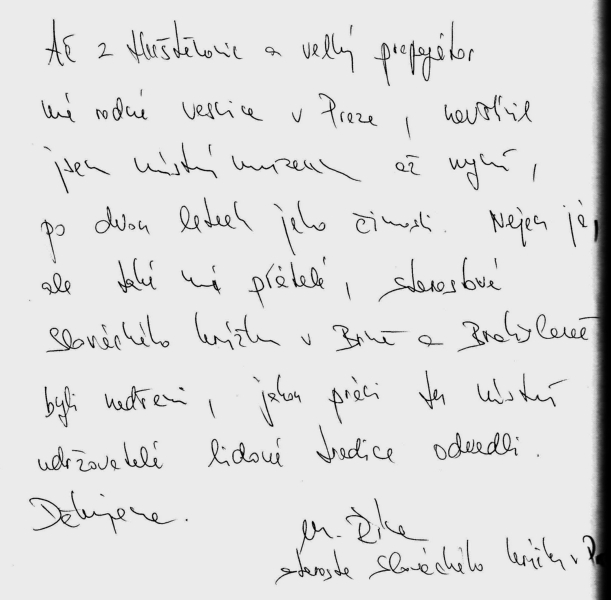 Ač z Huštěnovic a velký propagátor
mé rodné vesnice v Praze, navštívil
jsem místní muzeum až nyní,
po dvou letech jeho činnosti. Nejen já,
ale také mí přátelé, starostové
Slováckého krúžku v Brně a Bratislavě
byli nadšeni, jakou práci tu místní
udržovatelé lidové tradice odvedli.
Děkujeme.
M.
starosta Slováckého krúžku v